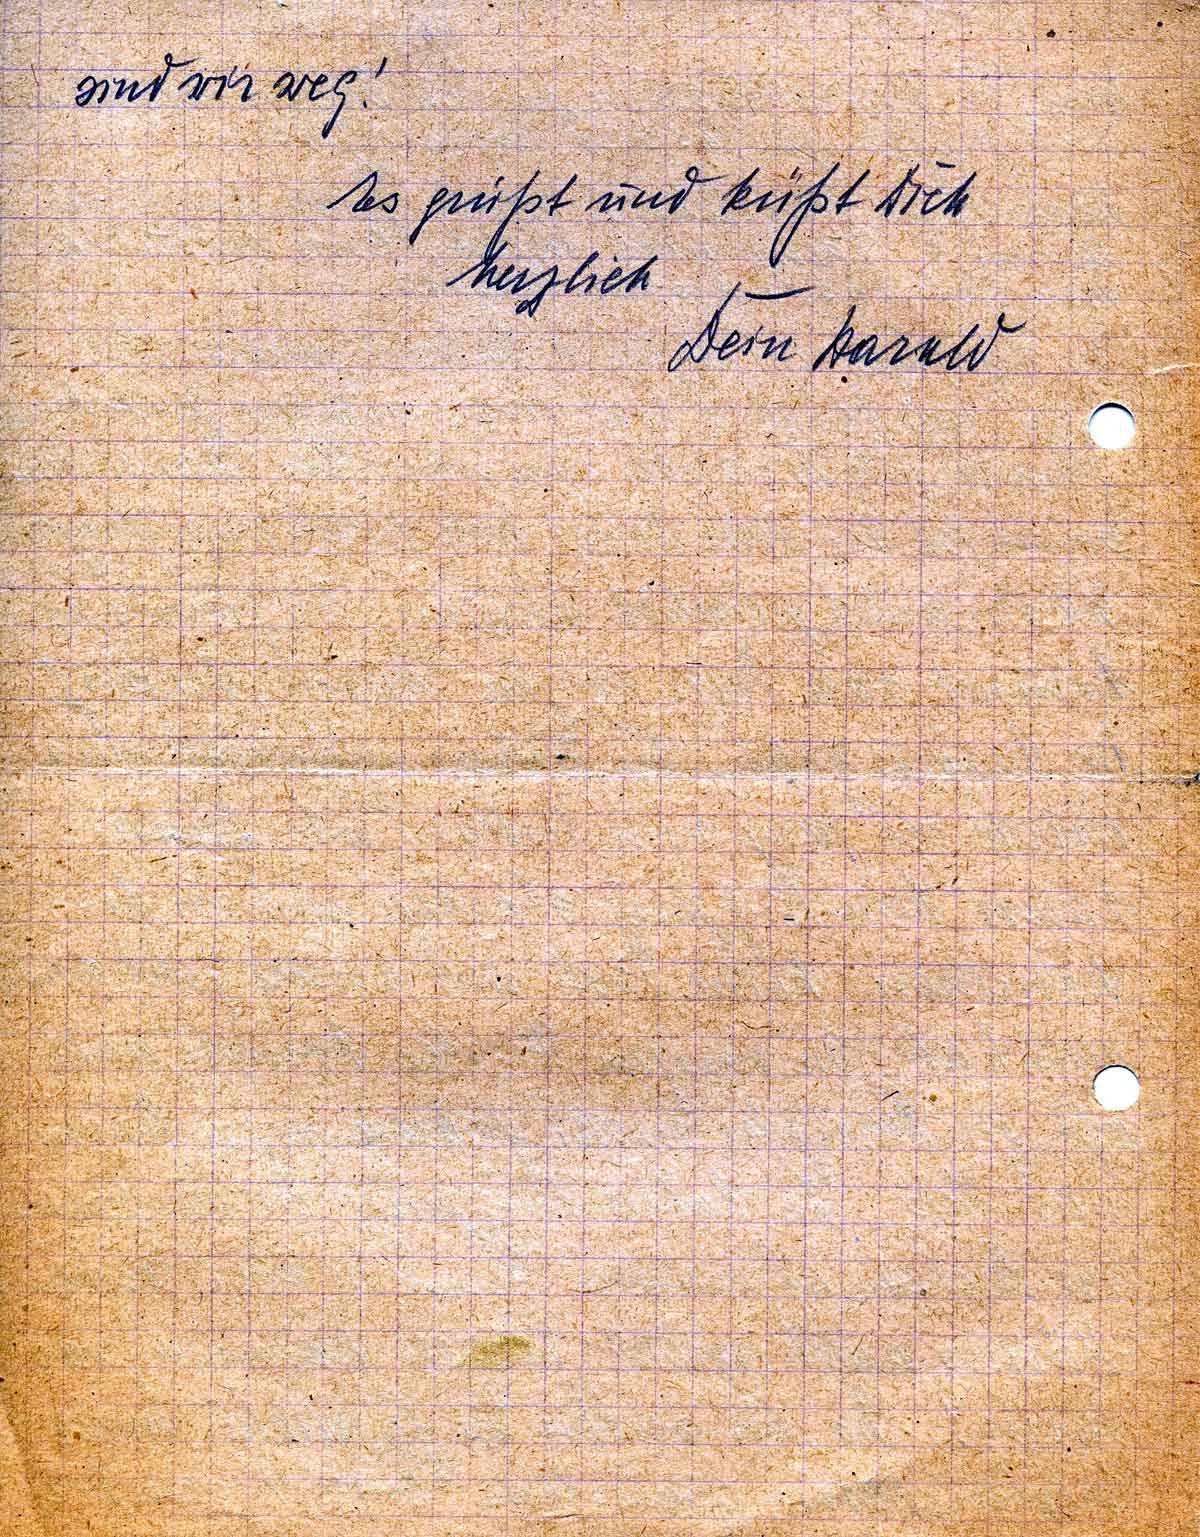 sind wir weg!
Es grüßt und küßt Dich
herzlich
Dein Harald